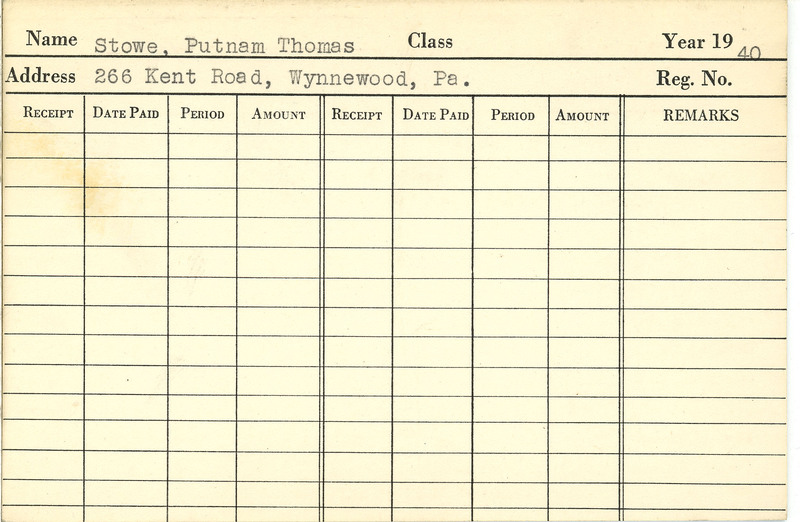 Name Stowe, Putnam Thomas Class Year 19 40
Address 266 Kent Road, Wynnewood, Pa. Reg. No.
RECEIPT DATE PAID PERIOD AMOUNT RECEIPT DATE PAID PERIOD AMOUNT REMARKS